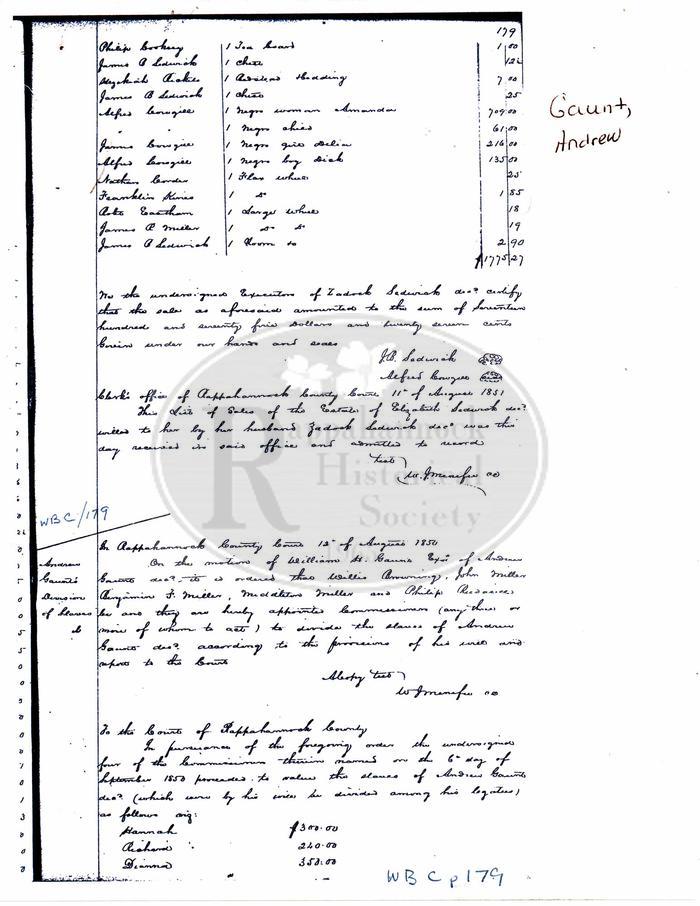 179
Philip Corkery 1 Tea Board 1 00
James A Sedwick 1 Chest 12½
Hezekiah Rickets 1 Bedding 7 00
James B Sedwick 1 Chest 25
Alfred Cowgill 1 Negro woman Amanda 709 00
" 1 Negro child 61 00
James Cowgill 1 Negro girl Delia 216 00
Alfred Cowgill 1 Negro boy Dick 135 00
Nathan Corder 1 Flax wheel 25
Franklin Kines 1 do 1 85
Eastham 1 Large wheel 18
James R Miller 1 do do 19
James A Sedwick 1 Loom 2 90
$1775 27
Gaunt,
Andrew
We the undersigned Executors of Zadock Sedwick decd certify
that the sale as aforesaid amounted to the sum of Seventeen
hundred and seventy five Dollars and twenty seven cents
Given under our hands and seals
J.B. Sedwick
Alfred Cowgill
Clerk's office of Rappahannock County Court 11th of August 1851
This List of Sales of the Estate of Elizabeth Sedwick decd
willed to her by her husband Zadock Sedwick decd was this
day received in said office and admitted to record
Test
W. J. Menefee CC
Rappahannock
Historical
Society
WBC/179
In Rappahannock County Court 12th of August 1850
Andrew
Gaunt's
Division
of Slaves
&
On the motion of William H. Gaunt Exor of Andrew
Gaunt decd it is ordered that Willis Browning, John Miller
Benjamin F. Miller, Middleton Miller and Philip
be and they are hereby appointed Commissioners (any three or
more of whom to act) to divide the slaves of Andrew
Gaunt decd according to the provisions of his will and
report to the Court
A copy test
W J Menefee CC
To the Court of Rappahannock County
In pursuance of the foregoing order the undersigned
four of the Commissioners therein named on the 6th day of
September 1850 proceeded to value the slaves of Andrew Gaunt
decd (which were by his will to be divided among his legatees)
as follows viz:
Hannah $300.00
Richard 240.00
Dianna 350.00
WBC p 179